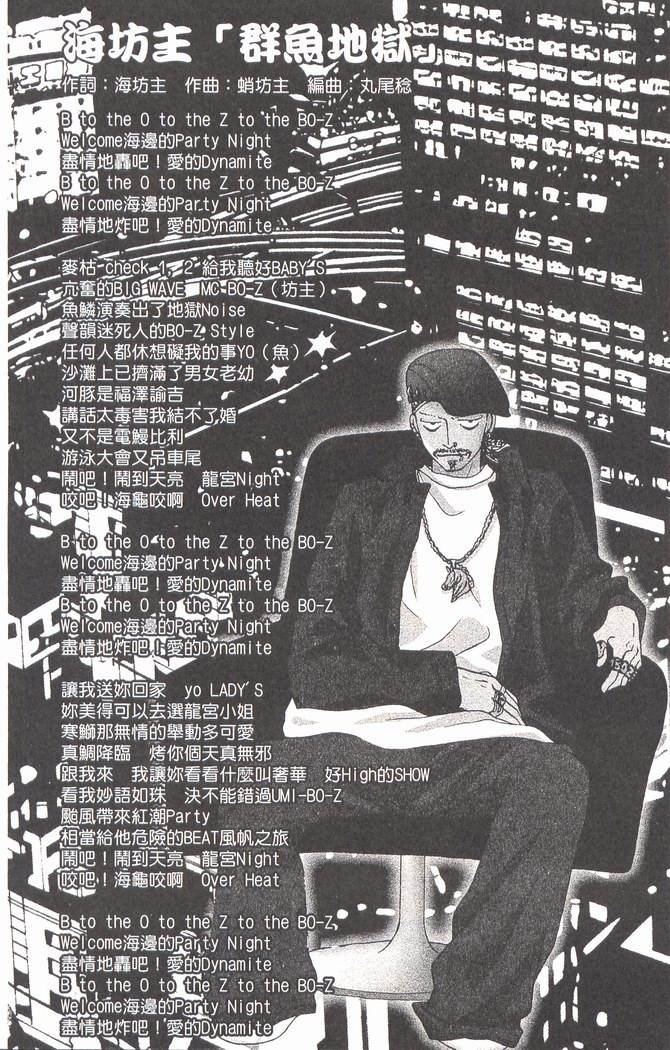 海坊主「群魚地獄」
作詞：海坊主　作曲：蛸坊主　編曲：丸尾稔
B to the O to the Z to the BO-Z
Welcome海邊的Party Night
盡情地轟吧！愛的Dynamite
B to the O to the Z to the BO-Z
Welcome海邊的Party Night
盡情地炸吧！愛的Dynamite
麥枯 check 1, 2 給我聽好BABY'S
亢奮的BIG WAVE　MC BO-Z（坊主）
魚鱗演奏出了地獄Noise
聲韻迷死人的BO-Z Style
任何人都休想礙我的事YO（魚）
沙灘上已擠滿了男女老幼
河豚是福澤諭吉
講話太毒害我結不了婚
又不是電鰻比利
游泳大會又吊車尾
鬧吧！鬧到天亮　龍宮Night
咬吧！海龜咬啊　Over Heat
B to the O to the Z to the BO-Z
Welcome海邊的Party Night
盡情地轟吧！愛的Dynamite
B to the O to the Z to the BO-Z
Welcome海邊的Party Night
盡情地炸吧！愛的Dynamite
讓我送妳回家　yo LADY'S
妳美得可以去選龍宮小姐
寒鰤那無情的舉動多可愛
真鯛降臨　烤你個天真無邪
跟我來　我讓妳看看什麼叫奢華　好High的SHOW
看我妙語如珠　決不能錯過UMI-BO-Z
颱風帶來紅潮Party
相當給他危險的BEAT風帆之旅
鬧吧！鬧到天亮　龍宮Night
咬吧！海龜咬啊　Over Heat
B to the O to the Z to the BO-Z
Welcome海邊的Party Night
盡情地轟吧！愛的Dynamite
B to the O to the Z to the BO-Z
Welcome海邊的Party Night
盡情地炸吧！愛的Dynamite